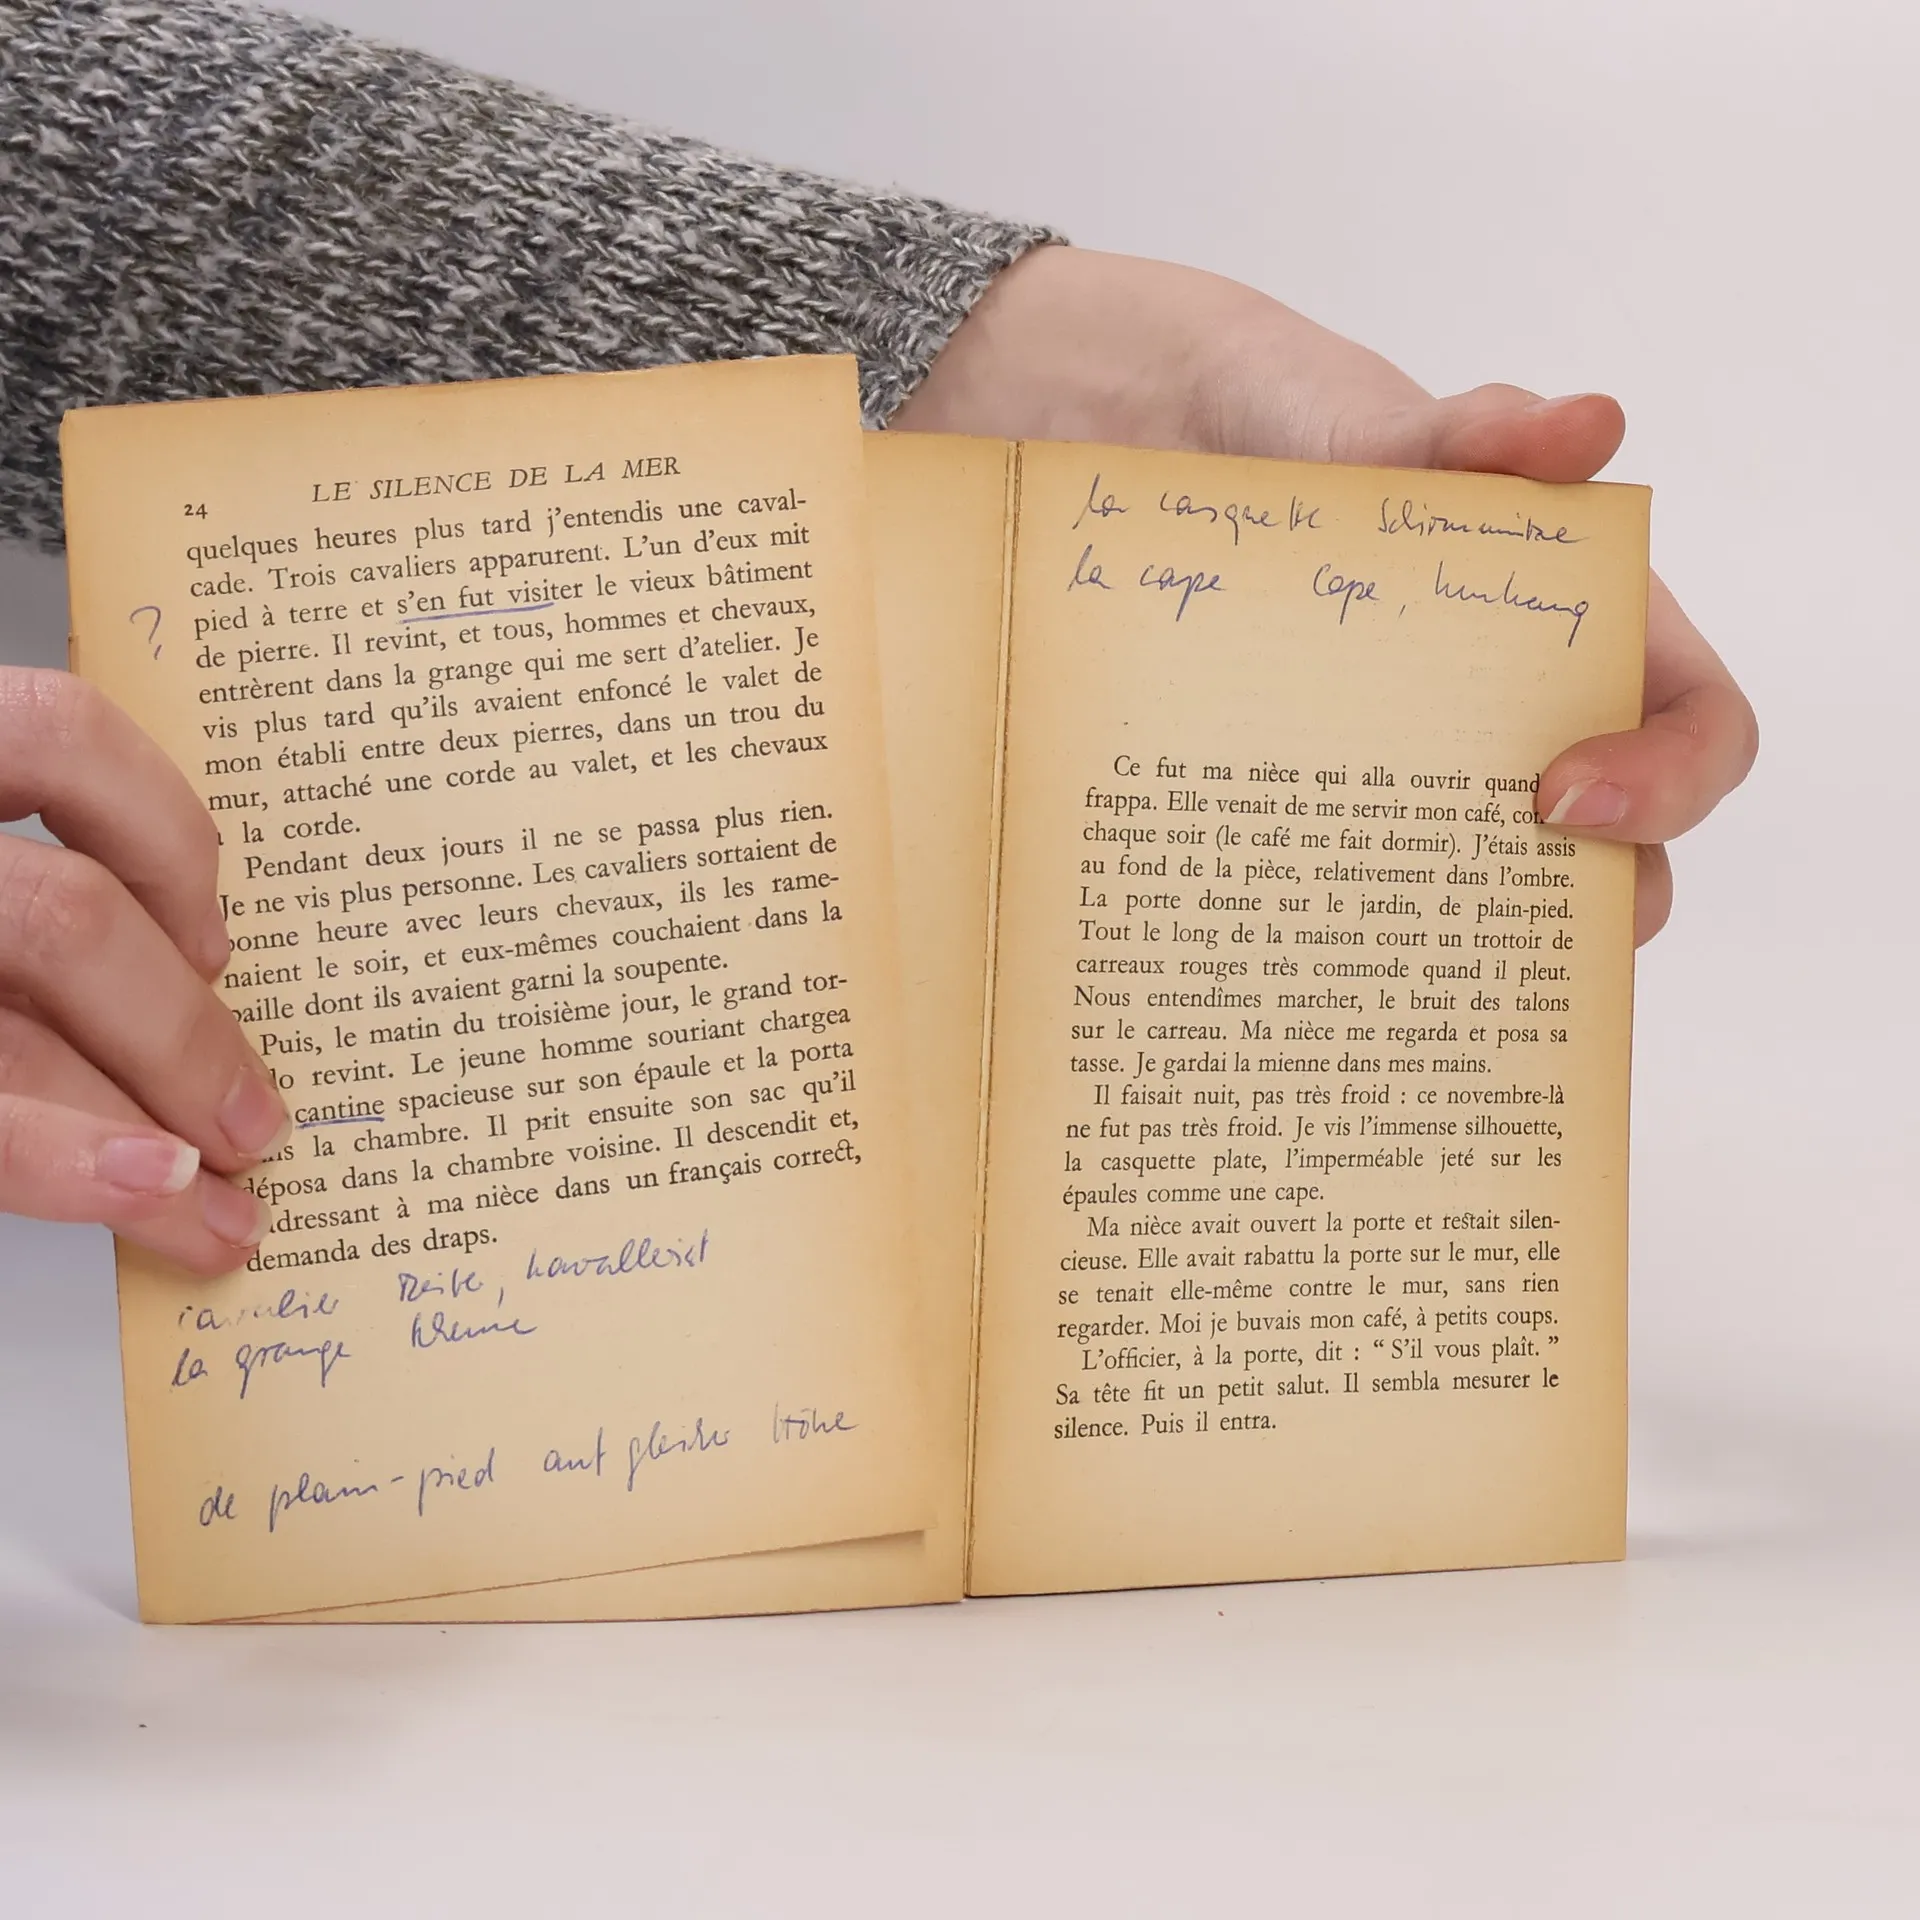 24 LE SILENCE DE LA MER
quelques heures plus tard j'entendis une caval-
cade. Trois cavaliers apparurent. L'un d'eux mit
pied à terre et s'en fut visiter le vieux bâtiment
?
de pierre. Il revint, et tous, hommes et chevaux,
entrèrent dans la grange qui me sert d'atelier. Je
vis plus tard qu'ils avaient enfoncé le valet de
mon établi entre deux pierres, dans un trou du
mur, attaché une corde au valet, et les chevaux
la corde.
Pendant deux jours il ne se passa plus rien.
Je ne vis plus personne. Les cavaliers sortaient de
bonne heure avec leurs chevaux, ils les rame-
naient le soir, et eux-mêmes couchaient dans la
paille dont ils avaient garni la soupente.
Puis, le matin du troisième jour, le grand tor-
lo revint. Le jeune homme souriant chargea
cantine spacieuse sur son épaule et la porta
la chambre. Il prit ensuite son sac qu'il
déposa dans la chambre voisine. Il descendit et,
dressant à ma nièce dans un français correct,
demanda des draps.
cavalier Reiter, Kavallerist
la grange Scheune
de plain-pied auf gleicher Höhe
la casquette Schirmmütze
la cape Cape, Umhang
Ce fut ma nièce qui alla ouvrir quand
frappa. Elle venait de me servir mon café,
chaque soir (le café me fait dormir). J'étais assis
au fond de la pièce, relativement dans l'ombre.
La porte donne sur le jardin, de plain-pied.
Tout le long de la maison court un trottoir de
carreaux rouges très commode quand il pleut.
Nous entendîmes marcher, le bruit des talons
sur le carreau. Ma nièce me regarda et posa sa
tasse. Je gardai la mienne dans mes mains.
Il faisait nuit, pas très froid : ce novembre-là
ne fut pas très froid. Je vis l'immense silhouette,
la casquette plate, l'imperméable jeté sur les
épaules comme une cape.
Ma nièce avait ouvert la porte et restait silen-
cieuse. Elle avait rabattu la porte sur le mur, elle
se tenait elle-même contre le mur, sans rien
regarder. Moi je buvais mon café, à petits coups.
L'officier, à la porte, dit : “ S'il vous plaît. ”
Sa tête fit un petit salut. Il sembla mesurer le
silence. Puis il entra.